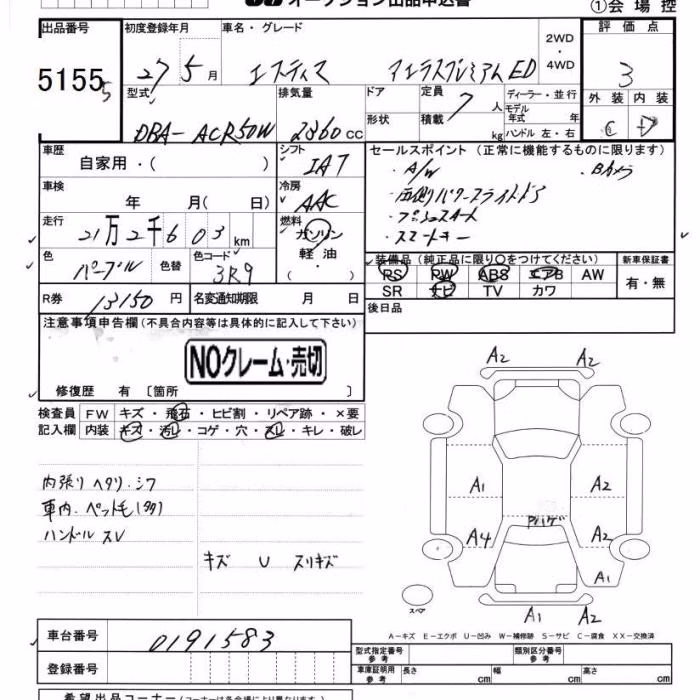 オークション出品申込書
①会場控
出品番号 初度登録年月 車名・グレード 2WD・4WD 評価点
5155 27 5月 エスティマ アエラスプレミアムED 3
5
型式 排気量 ドア 定員 7人 ディーラー・並行 外装 内装
DBA-ACR50W 2360cc 形状 積載 kg モデル年式 年 C D
ハンドル 左・右
車歴 自家用・( ) シフト IA7 セールスポイント (正常に機能するものに限ります)
・A/W ・Bカメラ
車検 年 月(日) 冷房 AAC ・両側パワースライドドア
走行 21万2千603km 燃料 ガソリン ・プッシュスタート
軽油 ・スマートキー
( ・ )
色 パープル 色替 色コード 3R9
装備品 (純正品に限り○をつけてください) 新車保証書
RS PW ABS エアB AW 有・無
SR ナビ TV カワ
R券 13150円 名変通知期限 月 日 後日品
注意事項申告欄 (不具合内容等は具体的に記入して下さい)
NOクレーム・売切
修復歴 有 〔箇所 〕
検査員 FW キズ・飛石・ヒビ割・リペア跡・×要
記入欄 内装 キズ・汚レ・コゲ・穴・スレ・キレ・破レ
内張りヘタリ・シワ
車内・ペット毛(多々)
ハンドル スレ
キズ U スリキズ
A2 A2
A1 A2
A4 Pハゲ A2
A1
A1 A2
スペア
A−キズ E−エクボ U−凹み W−補修跡 S−サビ C−腐食 XX−交換済
車台番号 0191583
型式指定番号 参考 類別区分番号 参考
登録番号
車庫証明用 参考 長さ cm 幅 cm 高さ cm
希望出品コーナー